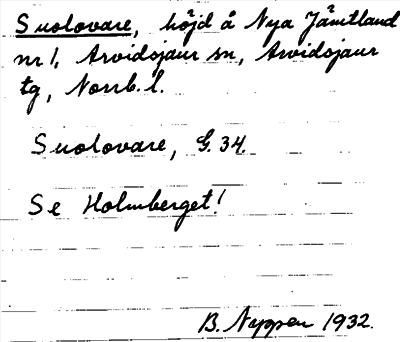 Suolovare, höjd å Nya Jämtland
nr 1, Arvidsjaur sn, Arvidsjaur
tg, Norrb. l.
Suolovare, G. 34.
Se Holmberget!
B. Nyppen 1932.